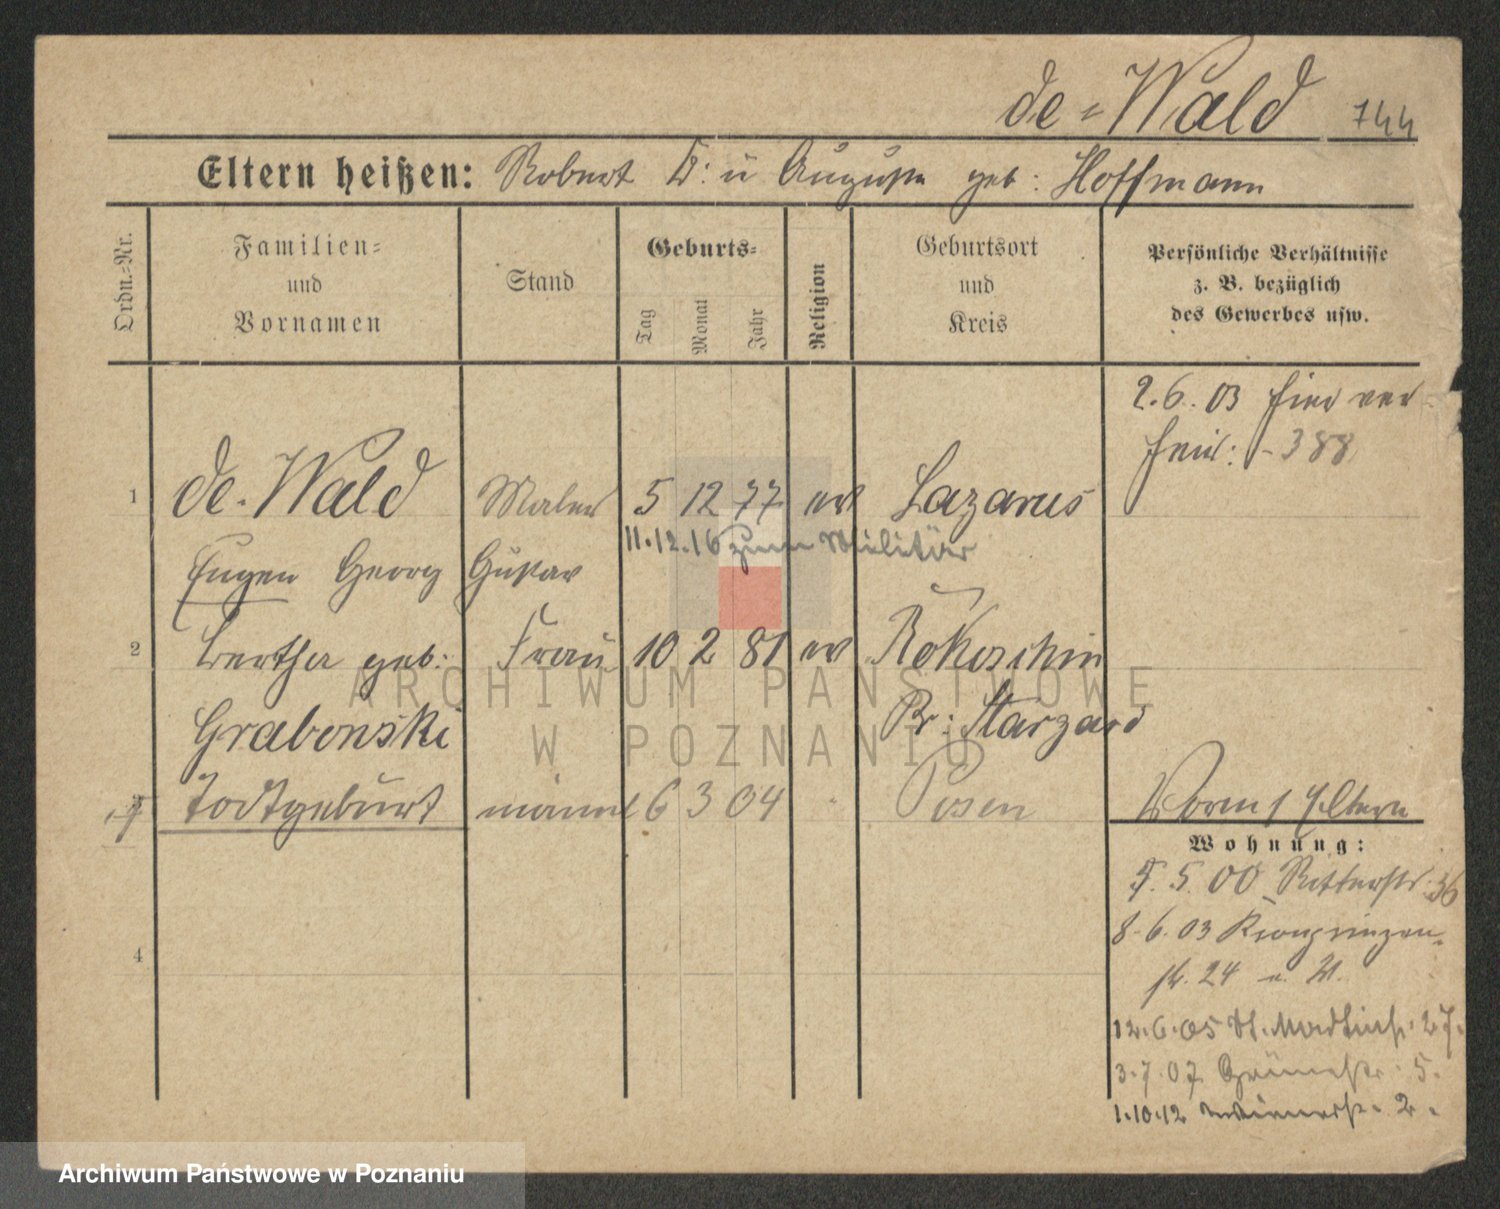 de=Wald 744
Eltern heißen: Robert W: u Auguste geb: Hoffmann
Ordn.=Nr.
Familien=
und
Vornamen
Stand
Geburts=
Tag
Monat
Jahr
Religion
Geburtsort
und
Kreis
Persönliche Verhältnisse
z. B. bezüglich
des Gewerbes usw.
2.6.03 hier ver-
heir: -388
1 de-Wald Maler 5 12 77 ev Lazarus
11.12.16 zum Militär
Eugen Georg Gustav
2 Bertha geb: Frau 10 2 81 ev Kokoschin
Grabowski Pr: Stargard
3 Todtgeburt männl 6 3 04 Posen
Eltern
Wohnung:
5. 00 Ritterstr. 36
8.6.03 Kronprinzen-
str. 24
4
12.6.05 St. Martinstr. 27.
3.7.07 5.
1.10.12 2.
ARCHIWUM PAŃSTWOWE
W POZNANIU
Archiwum Państwowe w Poznaniu